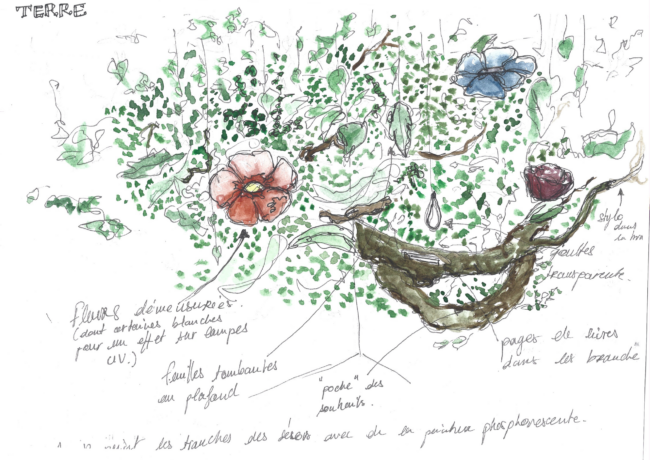 TERRE
stylo
dans
gouttes
transparente.
fleurs démeusurées.
(dont certaines blanches
pour un effet sur lampes
UV.)
pages de livres
dans les branche
feuilles tombantes
au plafond
"poche" des
souhaits.
les tranches des avec de la peinture phosphorescente.